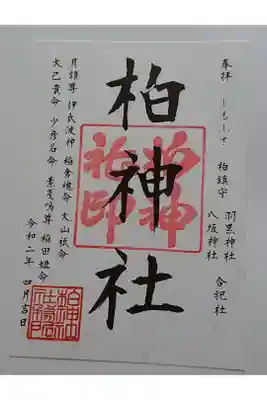 奉拝 しもしさ 柏鎮守 羽黒神社 八坂神社 合祀社
柏神社
月読尊 伊氐波神 稲倉魂命 大山祇命
大己貴命 少彦名命 素戔嗚尊 稲田姫命
令和二年 四月吉日